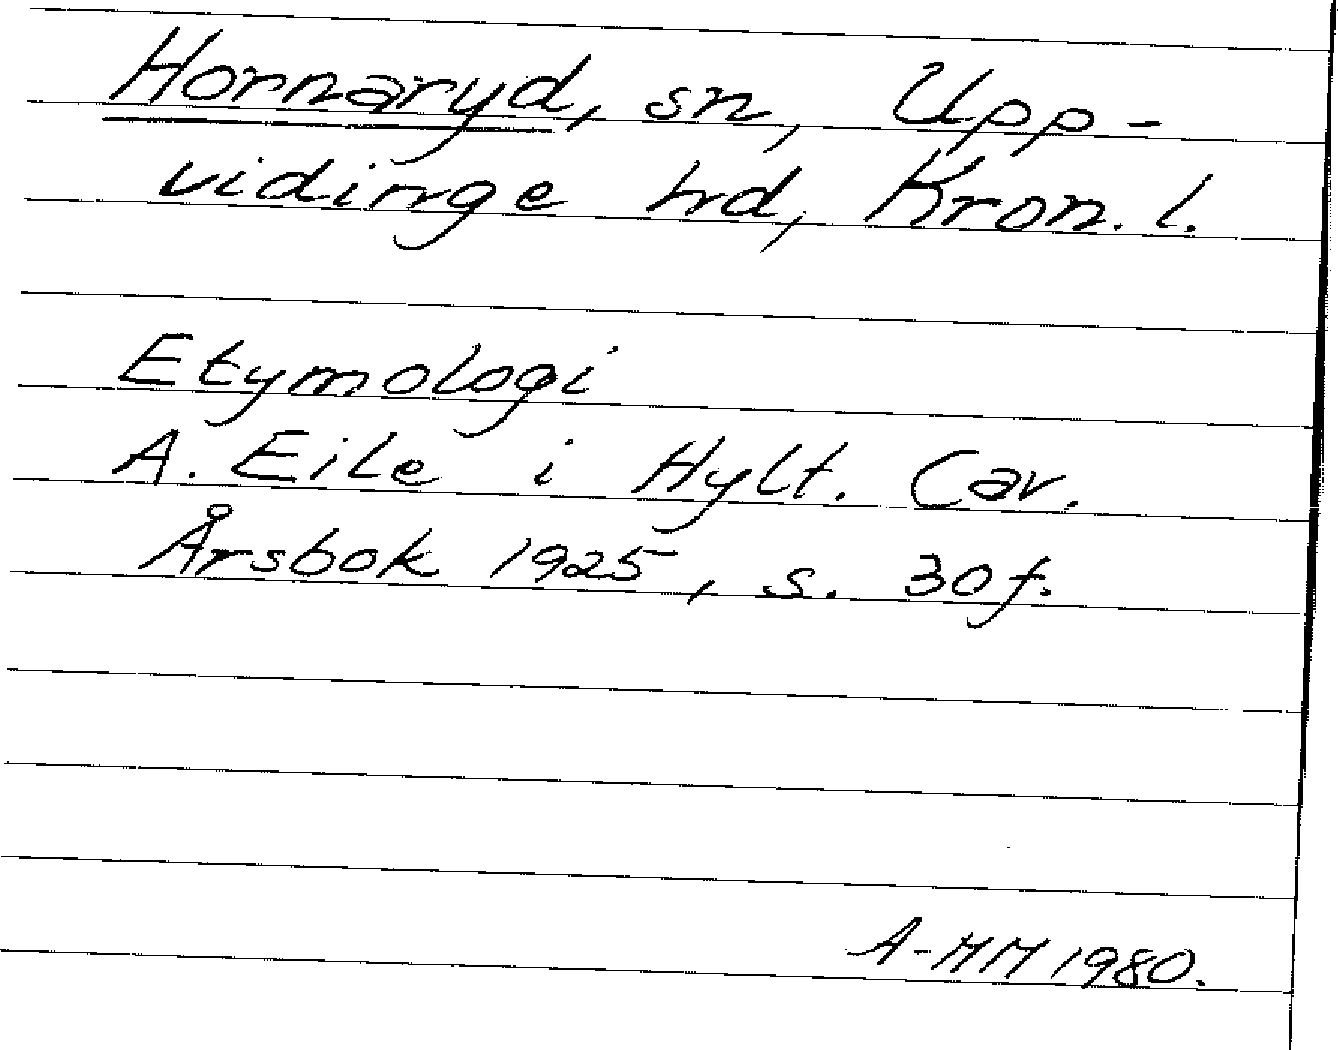 Hornaryd, sn, Upp-
vidinge hd, Kron. l.
Etymologi
A. Eile i Hylt. Cav.
Årsbok 1925, s. 30f.
A-MM 1980.